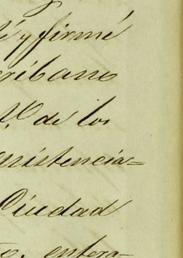 y firmé
cribano
de los
ecsistencia=
Ciudad
entera-